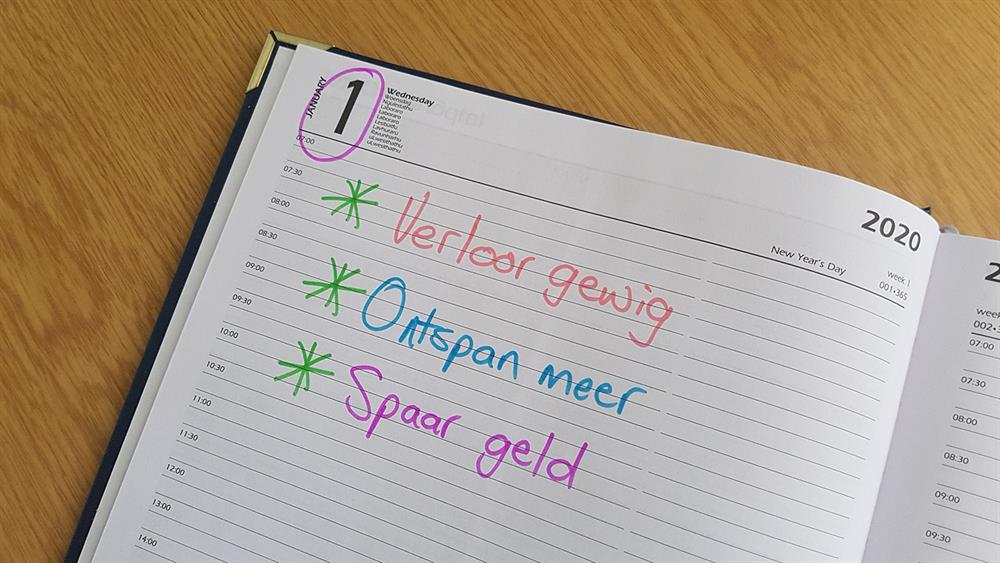 JANUARY
1
Wednesday
Woensdag
2020
New Year's Day
week 1
001•365
07:00
07:30
08:00
08:30
09:00
09:30
10:00
10:30
11:00
11:30
12:00
13:00
14:00
* Verloor gewig
* Ontspan meer
* Spaar geld
2
week
002•3
07:00
07:30
08:00
08:30
09:00
09:30